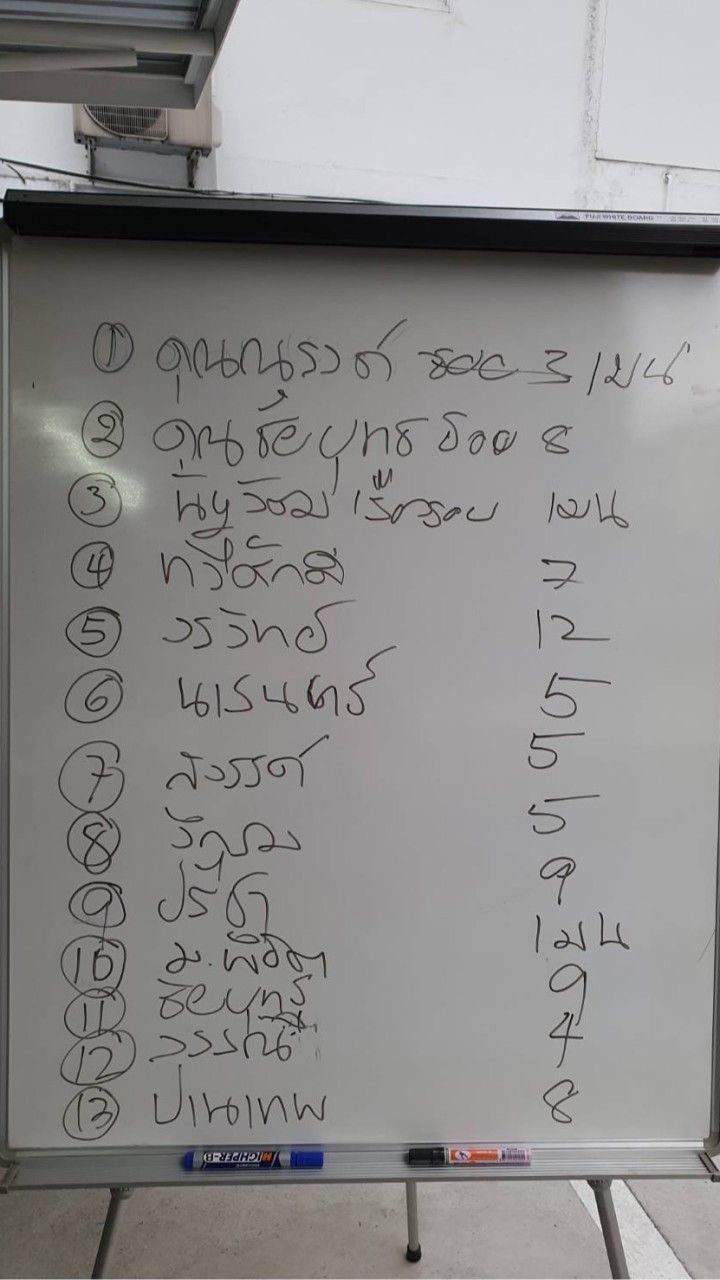 FUJI WHITE BOARD
① คุณณรงค์ ซอย 3 เมน
② คุณชัยยุทธ ซอย 8
③ เมน
④ ทวีศักดิ์ 7
⑤ วรวิทย์ 12
⑥ นเรนทร์ 5
⑦ สวรรค์ 5
⑧ 5
⑨ ปรีชา 9
⑩ เมน
⑪ ชัยยุทธ 9
⑫ วรรณี 4
⑬ ปานเทพ 8
HIGHPER-B